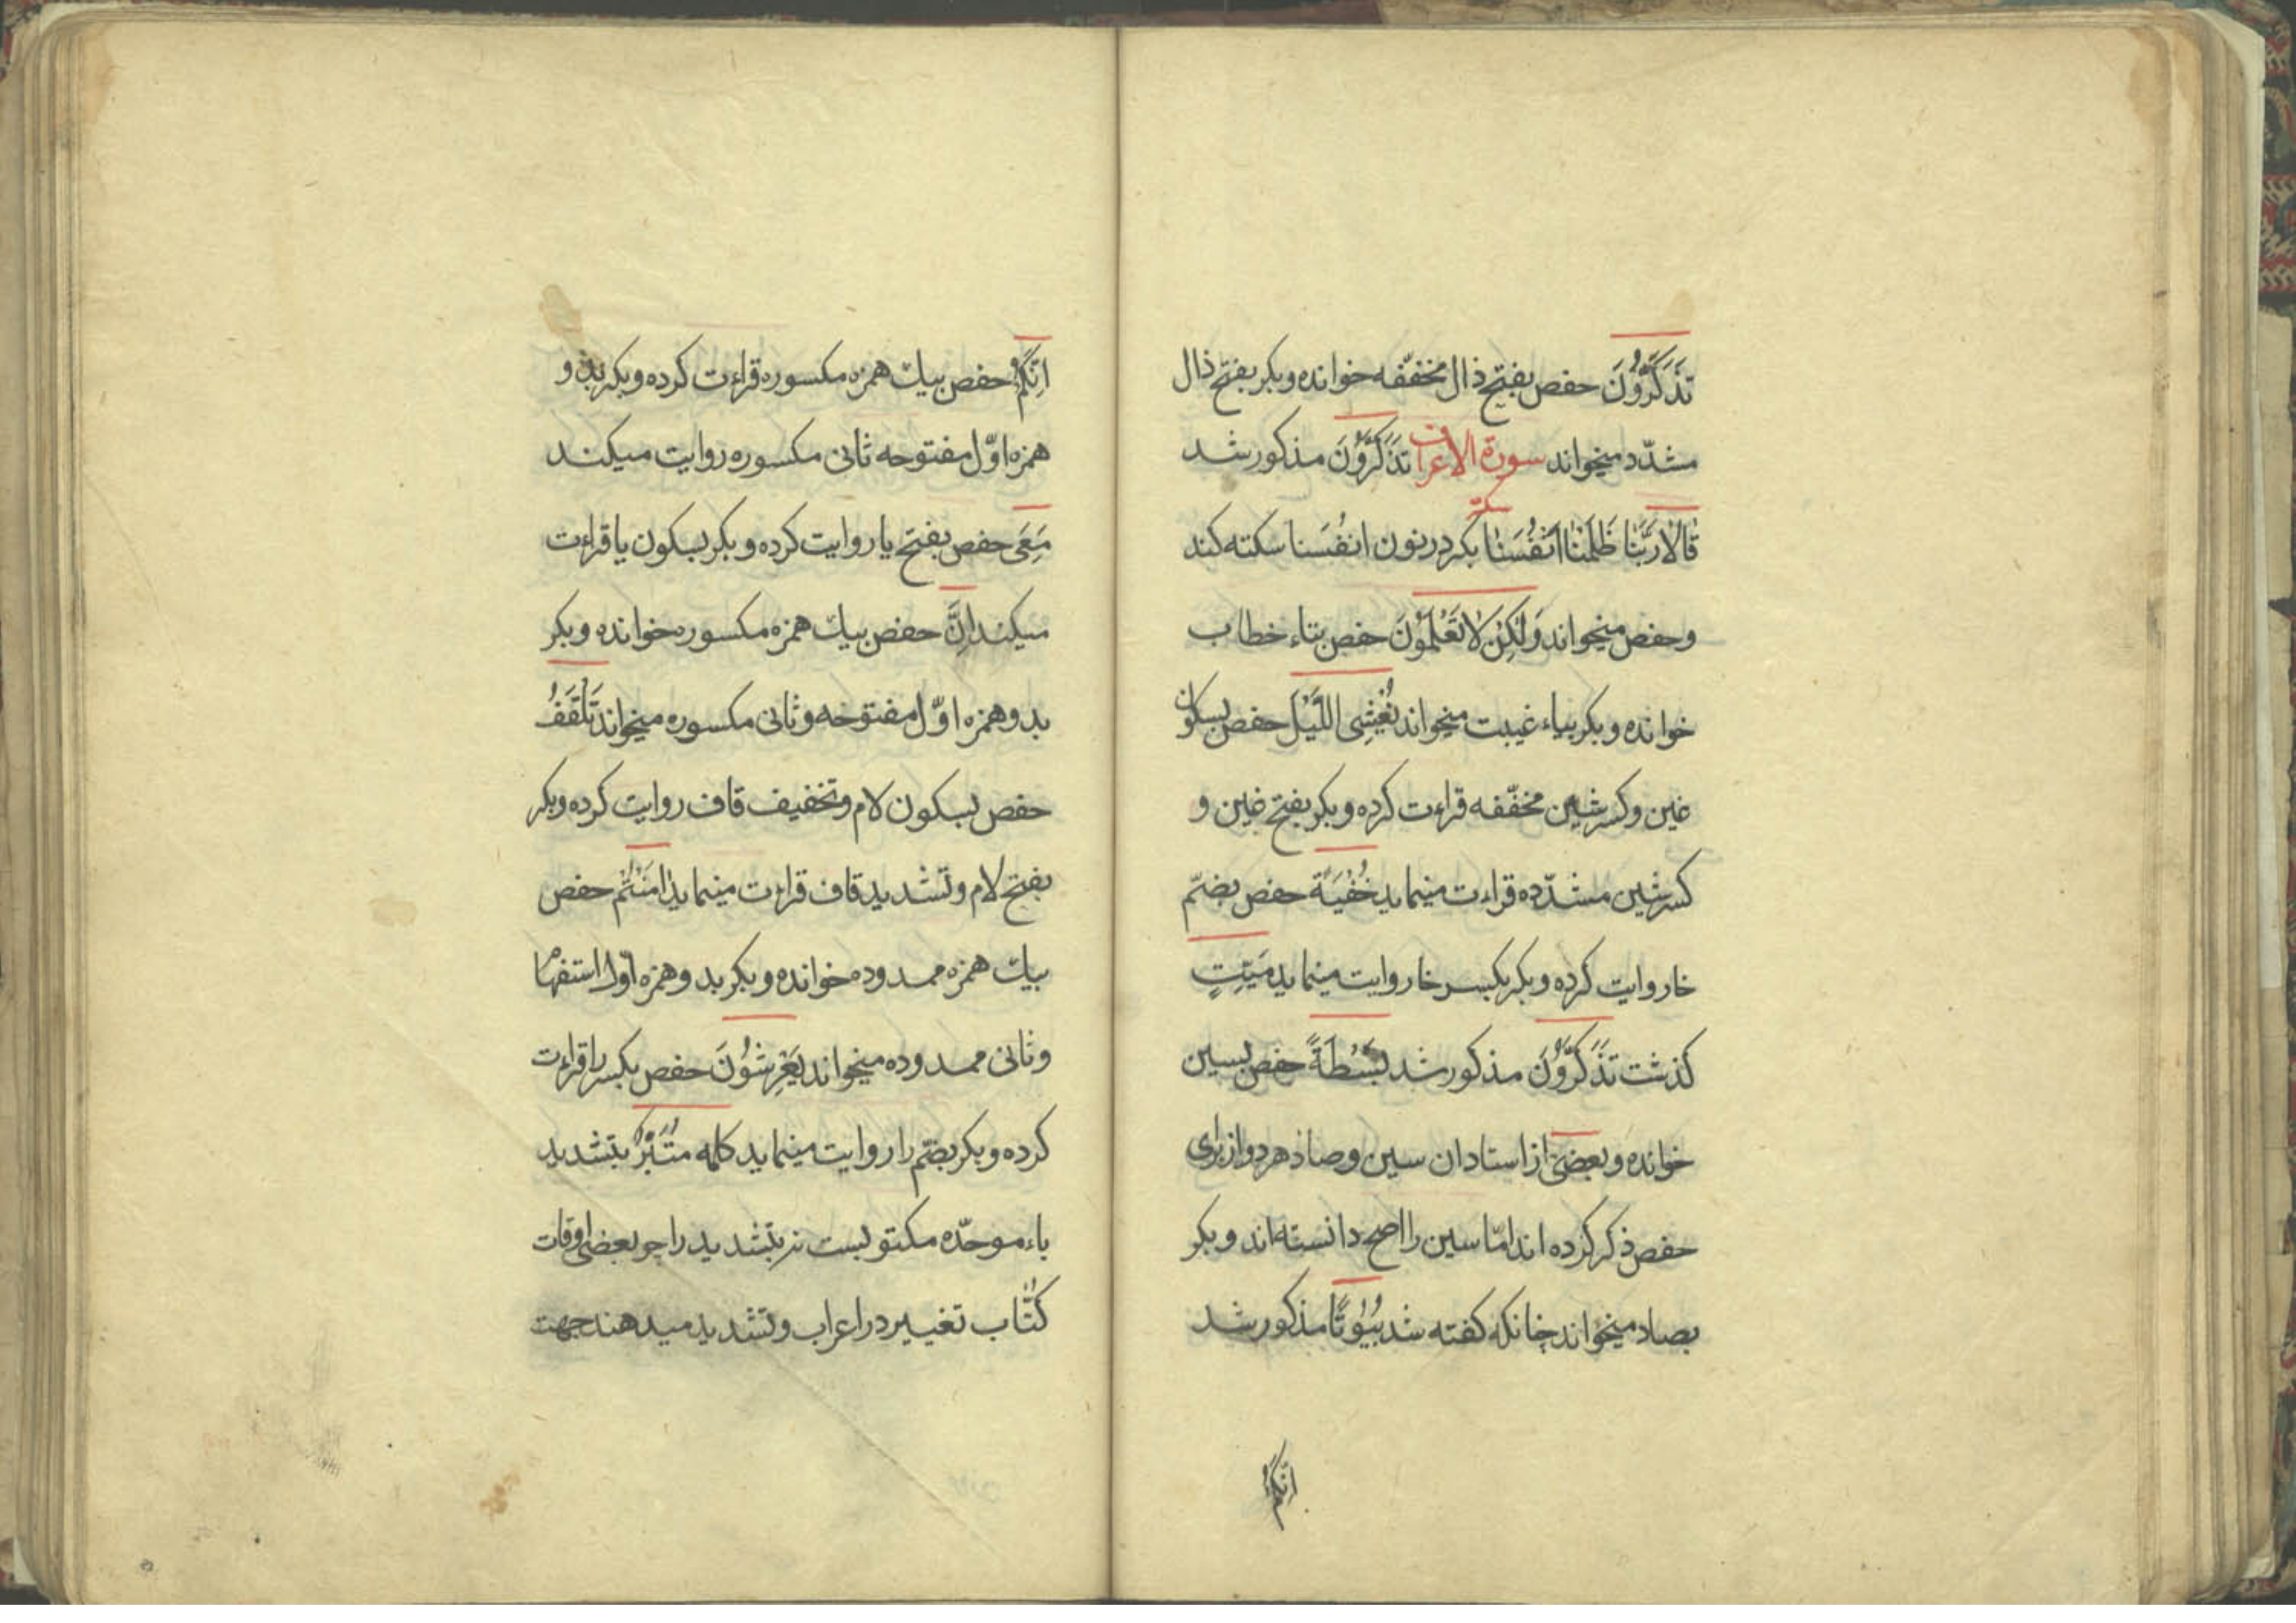 تَذَكَّرُونَ حفص بفتح ذال مخففّه خوانده وبكر بفتح ذال
مشدّد میخواند سورة الاعراف تَذَكَّرُونَ مذکور شد
سکته
قٰالاٰ رَبَّنٰا ظَلَمْنٰا اَنْفُسَنٰا بکر در نون انفُسَنا سکته کند
وحفص میخواند وَلٰكِنْ لاٰ تَعْلَمُونَ حفص بتاء خطاب
خوانده وبکر بیاء غیبت میخواند يُغْشِى اللَّيْلَ حفص بسکون
غین وکسر شین مخففّه قراءت کرده وبکر بفتح غین و
کسر شین مشدّده قراءت مینماید خُفْيَةً حفص بضمّ
خا روایت کرده وبکر بکسر خا روایت مینماید مَيِّتٍ
کذشت تَذَكَّرُونَ مذکور شد بَسْطَةً حفص بسین
خوانده وبعضی از استادان سین وصاد هر دو از برای
حفص ذکر کرده اند امّا سین را اصح دانسته اند وبکر
بصاد میخواند چنانکه کفته شد بُيُوتًا مذکور شد
اِنَّكُمْ
اِنَّكُمْ حفص بیك همزه مکسوره قراءت کرده وبکر بدو
همزه اوّل مفتوحه ثانی مکسوره روایت میکند
مَعِىَ حفص بفتح یا روایت کرده وبکر بسکون یا قراءت
میکند اِنَّ حفص بیك همزه مکسوره خوانده وبکر
بدو همزه اوّل مفتوحه وثانی مکسوره میخواند تَلْقَفُ
حفص بسکون لام وتخفیف قاف روایت کرده وبکر
بفتح لام وتشدید قاف قراءت مینماید اٰمَنْتُمْ حفص
بیك همزه ممدوده خوانده وبکر بدو همزه اوّل استفهام
وثانی ممدوده میخواند يَعْرِشُونَ حفص بکسر را قراءت
کرده وبکر بضمّ را روایت مینماید کلمه مُتَبَّرٌ بتشدید
باء موحّده مکتوبست نه بتشدید را چو بعضی اوقات
کُتّاب تغییر در اعراب وتشدید میدهند جهت